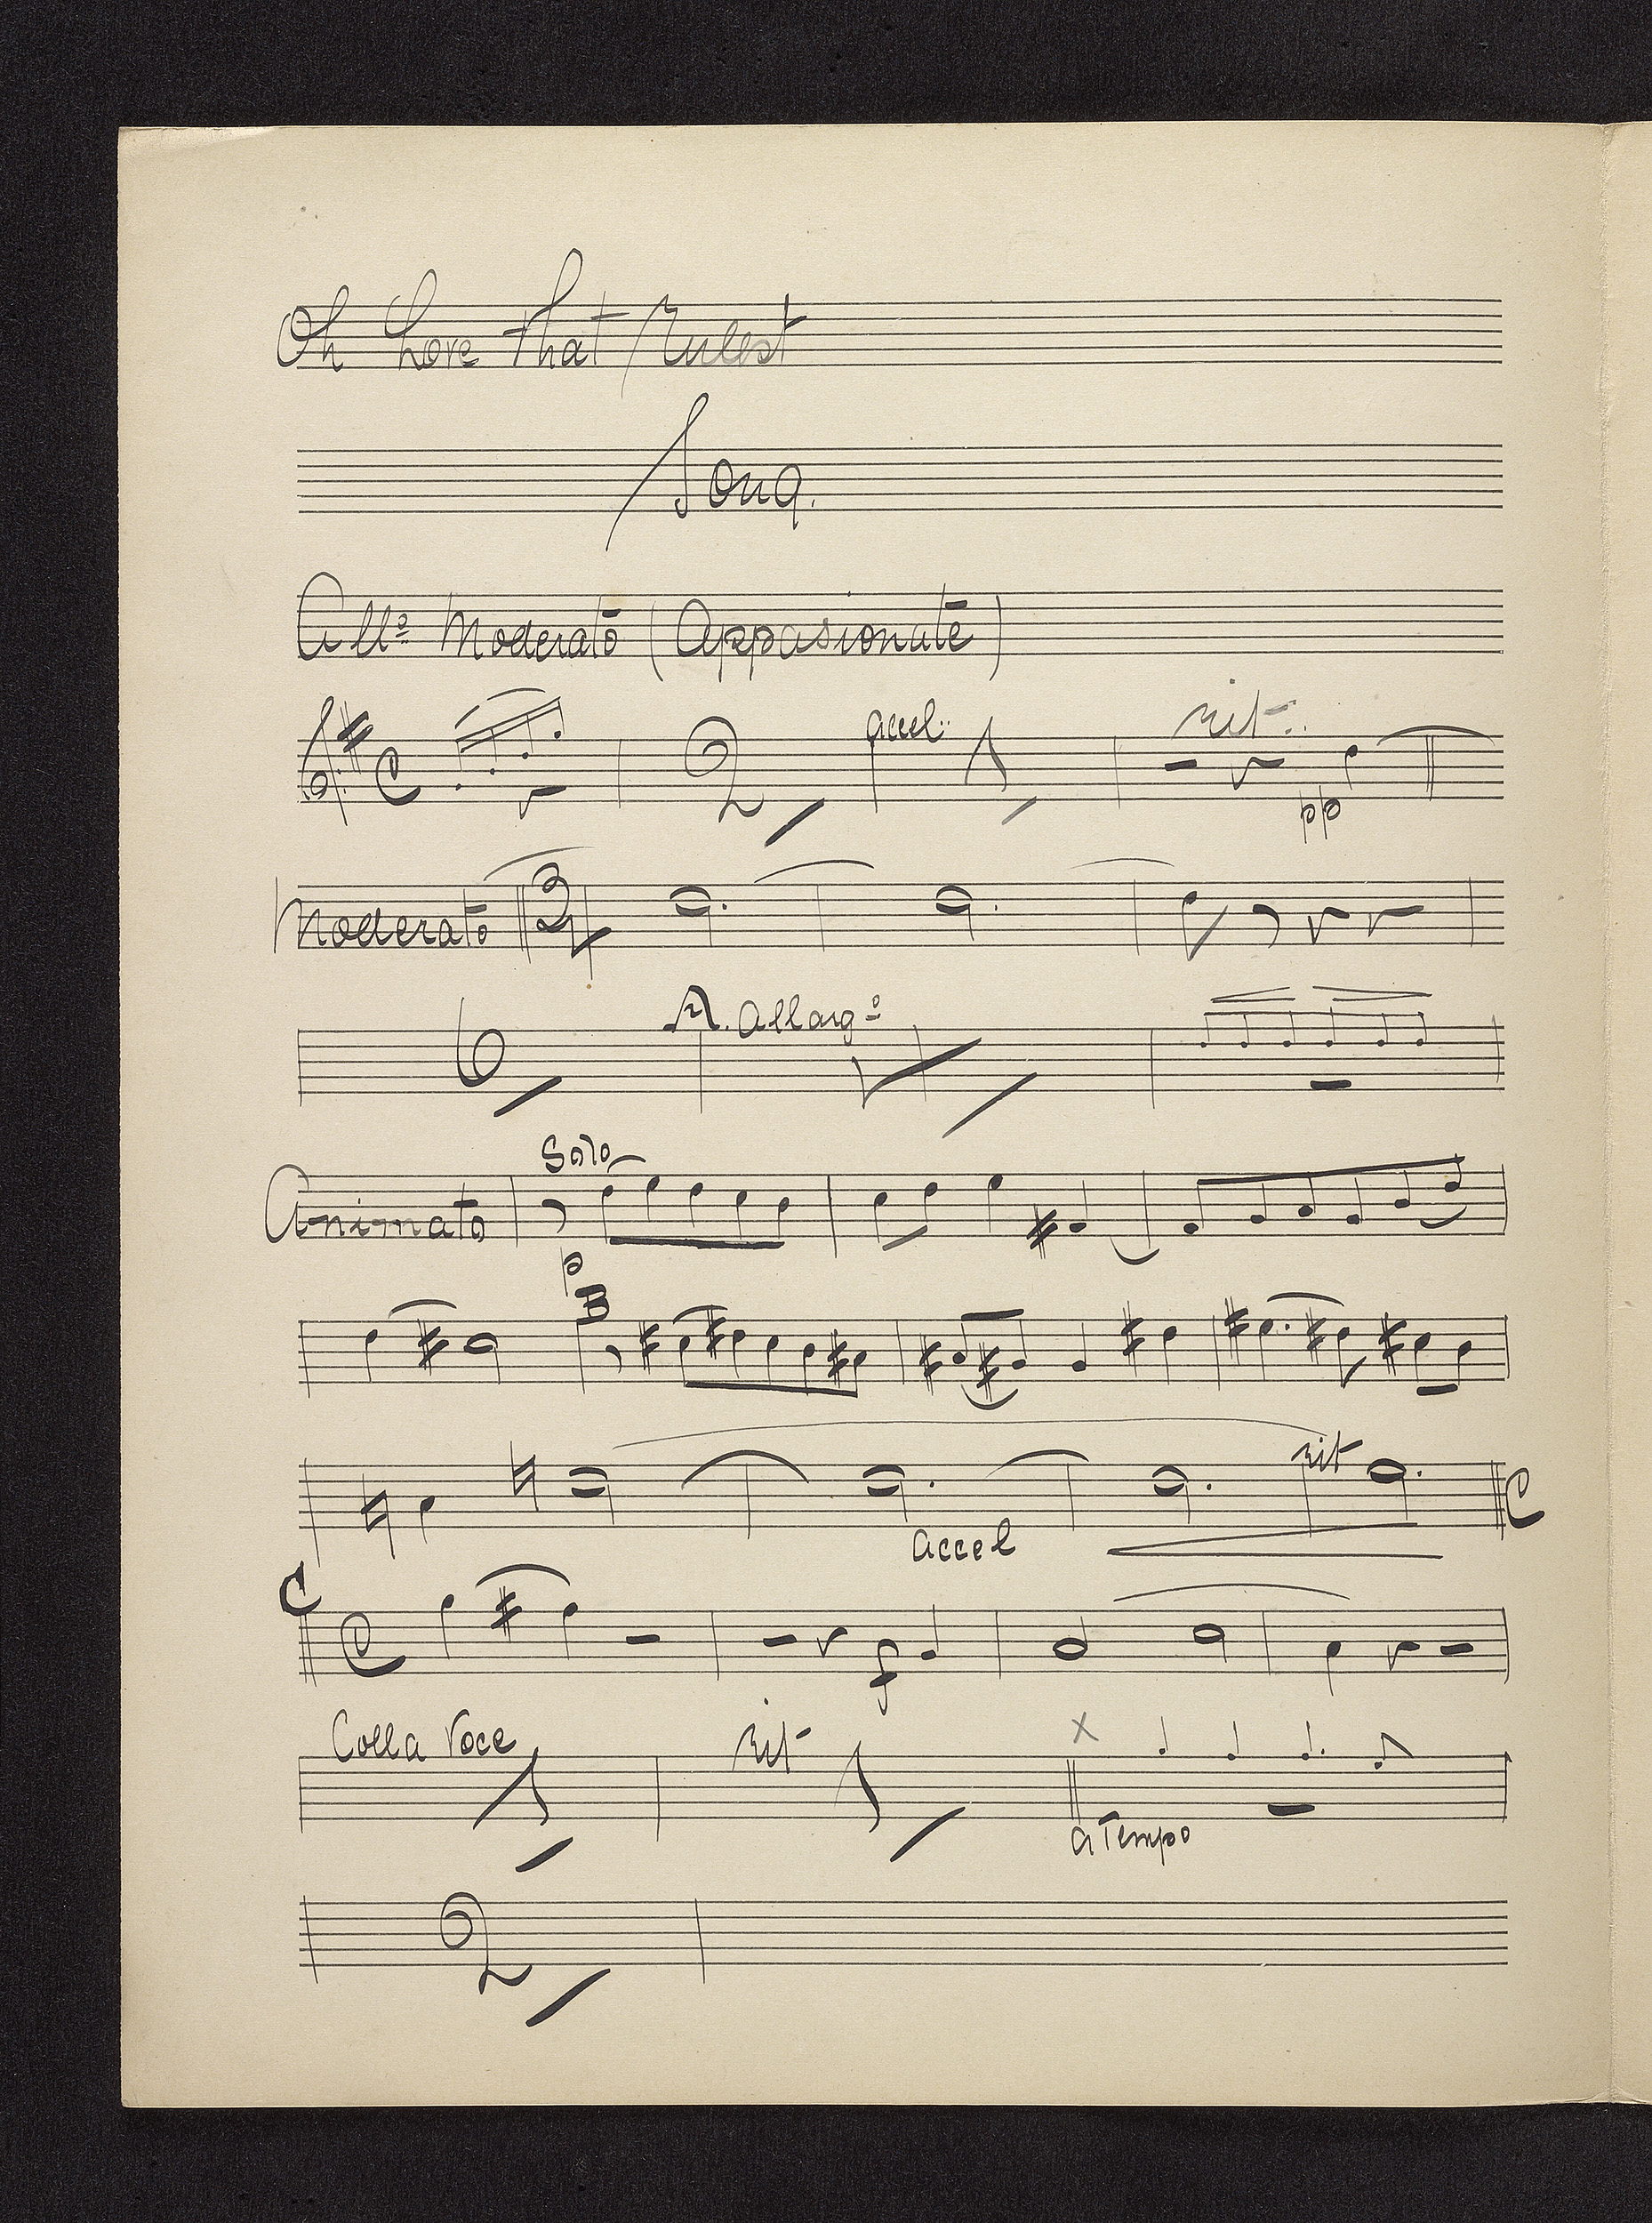 Oh Love that Rulest
Song.
All⁰ Moderato (Appasionate)
accel.. rit..
C 2
pp
Moderato 3/4
6 A. Allarg⁰
Solo
Animato
p
B
rit
C
accel
C
C
f
Colla Voce rit x
a Tempo
2